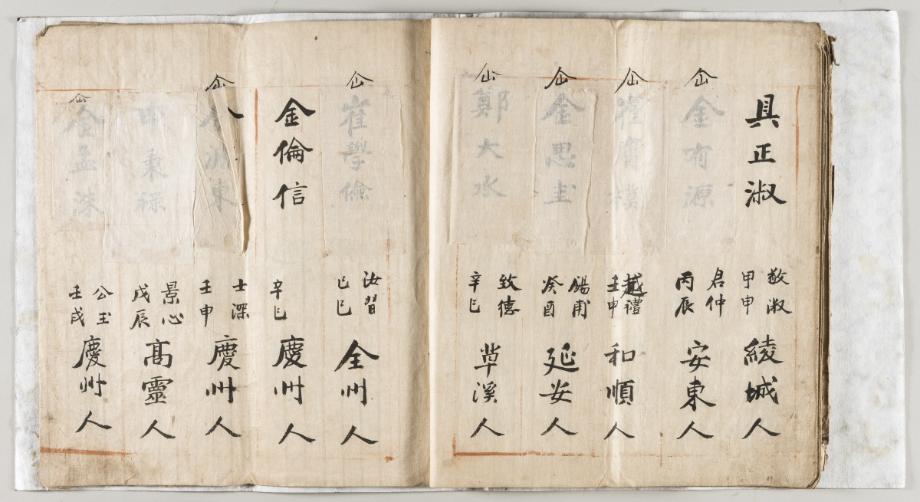 具正淑
敬淑
甲申
綾城人
仚
金有源
君仲
丙辰
安東人
仚
崔
越禮
壬申
和順人
仚
金思圭
錫甫
癸酉
延安人
仚
鄭大水
致德
辛巳
草溪人
仚
崔學儉
汝習
己巳
全州人
金倫信
辛巳
慶州人
仚
金 東
士深
壬申
慶州人
申秉祿
景心
戊辰
高靈人
仚
金孟洙
公玉
壬戌
慶州人